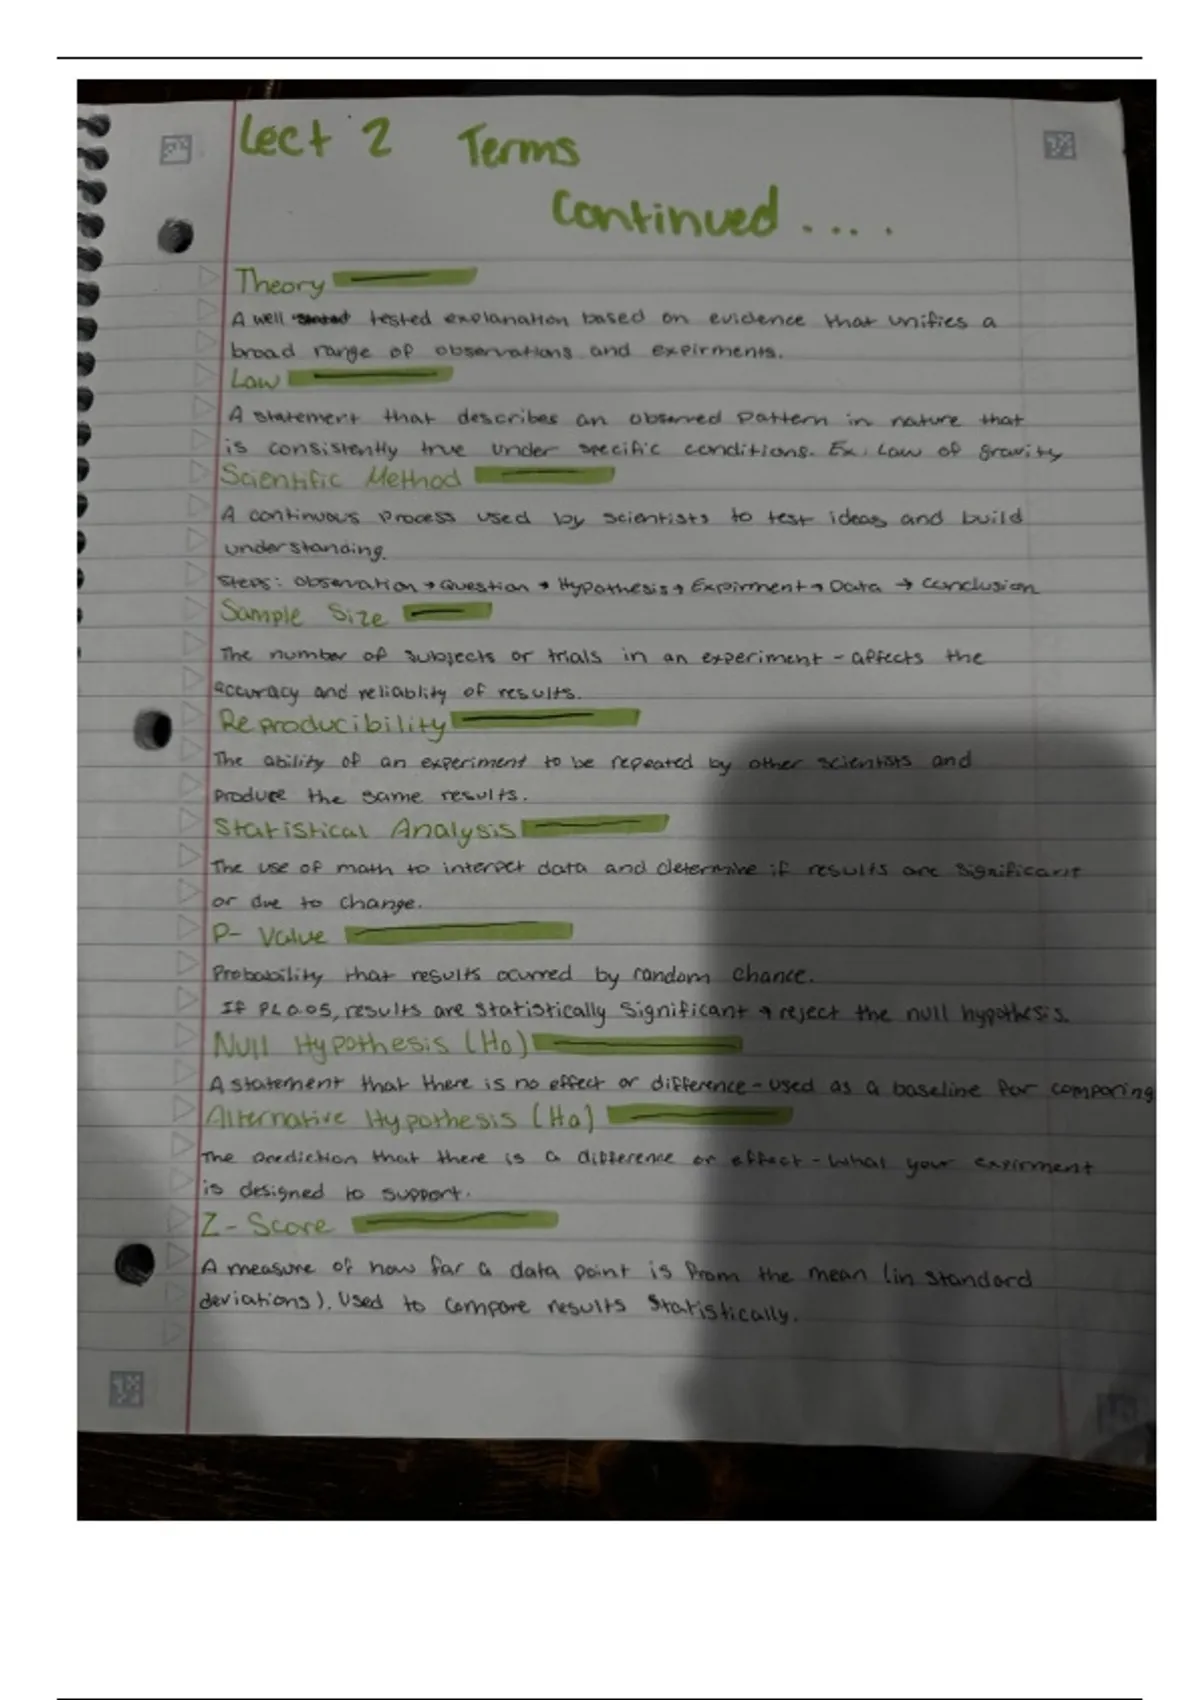 Lect 2 Terms
Continued ....
Theory
A well tested explanation based on evidence that unifies a
broad range of observations and expirments.
Law
A statement that describes an observed pattern in nature that
is consistently true under specific conditions. Ex: Law of gravity
Scientific Method
A continuous process used by scientists to test ideas and build
understanding.
Steps: Observation → Question → Hypothesis → Expirment → Data → Conclusion
Sample Size
The number of subjects or trials in an experiment - affects the
accuracy and reliablity of results.
Reproducibility
The ability of an experiment to be repeated by other scientists and
produce the same results.
Statistical Analysis
The use of math to interpet data and determine if results are significant
or due to change.
P- Value
Probability that results ocurred by random chance.
If P< 0.05, results are statistically significant → reject the null hypothesis.
Null Hypothesis (Ho)
A statement that there is no effect or difference - used as a baseline for comparing
Alternative Hypothesis (Ha)
The prediction that there is a difference or effect - what your expirment
is designed to support.
Z - Score
A measure of how far a data point is from the mean (in standard
deviations). Used to compare results statistically.